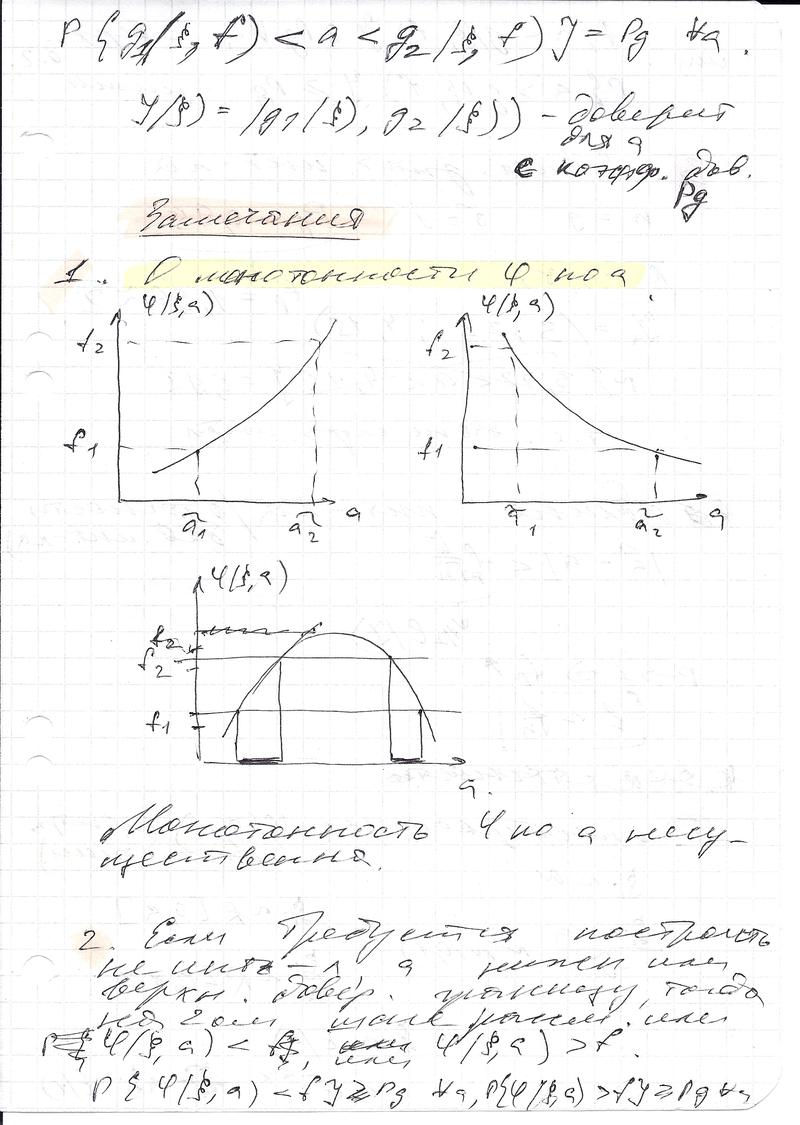 P{g₁(ξ, f) < a < g₂(ξ, f)} = Pg ∀a.
J(ξ) = (g₁(ξ), g₂(ξ)) – доверит
для a
с коэфф. дов.
Pg
Замечания
1. О монотонности φ по a
φ(ξ,a) φ(ξ,a)
f₂ f₂
f₁ f₁
ã₁ ã₂ a ã₁ ã₂ a
φ(ξ,a)
f₂
f₂
f₁
a
Монотонность φ по a несу-
щественна.
2. Если требуется построить
не инт-л а нижн или
верхн. довер. границу, тогда
на 2ом шаге или
φ(ξ,a) < f, или φ(ξ,a) > f.
P{φ(ξ,a) < f} ≥ Pg ∀a, P{φ(ξ,a) > f} ≥ Pg ∀a